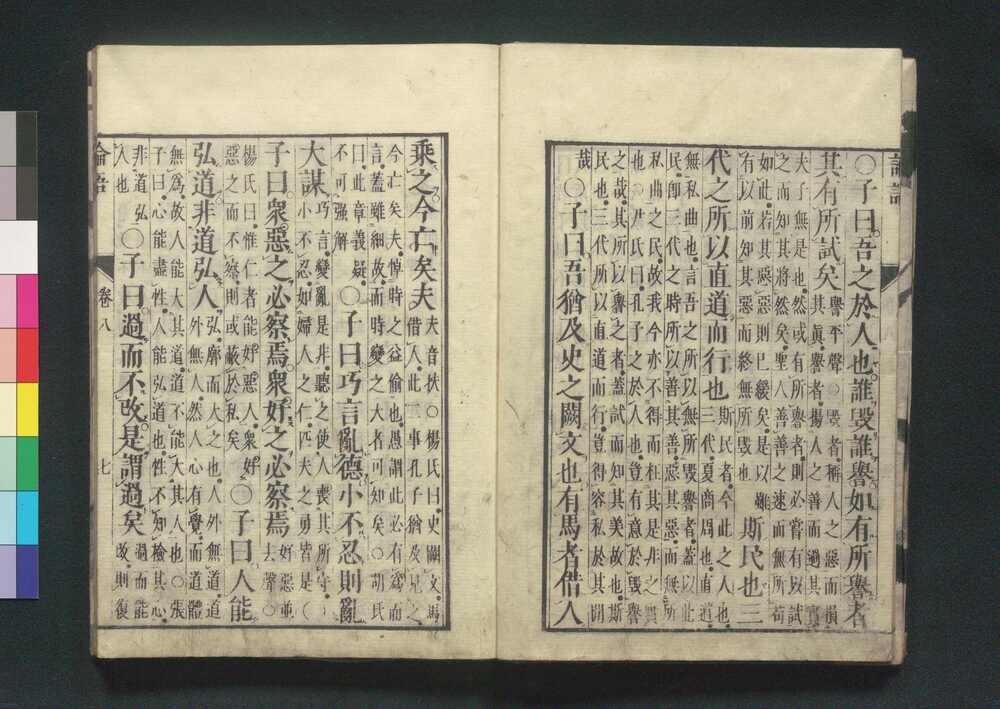 論語
○子曰吾之於人也誰毀誰譽如有所譽者
其有所試矣
譽平聲○毀者稱人之惡而損
其真譽者揚人之善而過其實
夫子無是也然或有所譽者則必嘗有以試
之而知其將然矣聖人善善之速而無所苟
如此若其惡惡則已緩矣是以雖
有以前知其惡而終無所毀也
斯民也三
代之所以直道而行也
斯民者今此之人也
三代夏商周也直道
無私曲也言吾之所以無所毀譽者蓋以此
民即三代之時所以善其善惡其惡而無所
私曲之民故我今亦不得而枉其是非之實
也○尹氏曰孔子之於人也豈有意於毀譽
之哉其所以譽之者蓋試而知其美故也斯
民也三代所以直道而行豈得容私於其間
哉
○子曰吾猶及史之闕文也有馬者借人
乘之今亡矣夫
夫音扶○楊氏曰史闕文馬
借人此二事孔子猶及見之
今亡矣夫悼時之益偷也愚謂此必有爲而
言蓋雖細故而時變之大者可知矣○胡氏
曰此章義疑
不可強解
○子曰巧言亂德小不忍則亂
大謀
巧言變亂是非聽之使人喪其所守
小不忍如婦人之仁匹夫之勇皆是○
子曰衆惡之必察焉衆好之必察焉
好惡並
去聲○
楊氏曰惟仁者能好惡人衆好
惡之而不察則或蔽於私矣
○子曰人能
弘道非道弘人
弘廓而大之也人外無道道
外無人然人心有覺而道體
無爲故人能大其道道不能大其人也○張
子曰心能盡性人能弘道也性不知檢其心
非道弘
人也
○子曰過而不改是謂過矣
過而能
改則復
論語
卷八
七